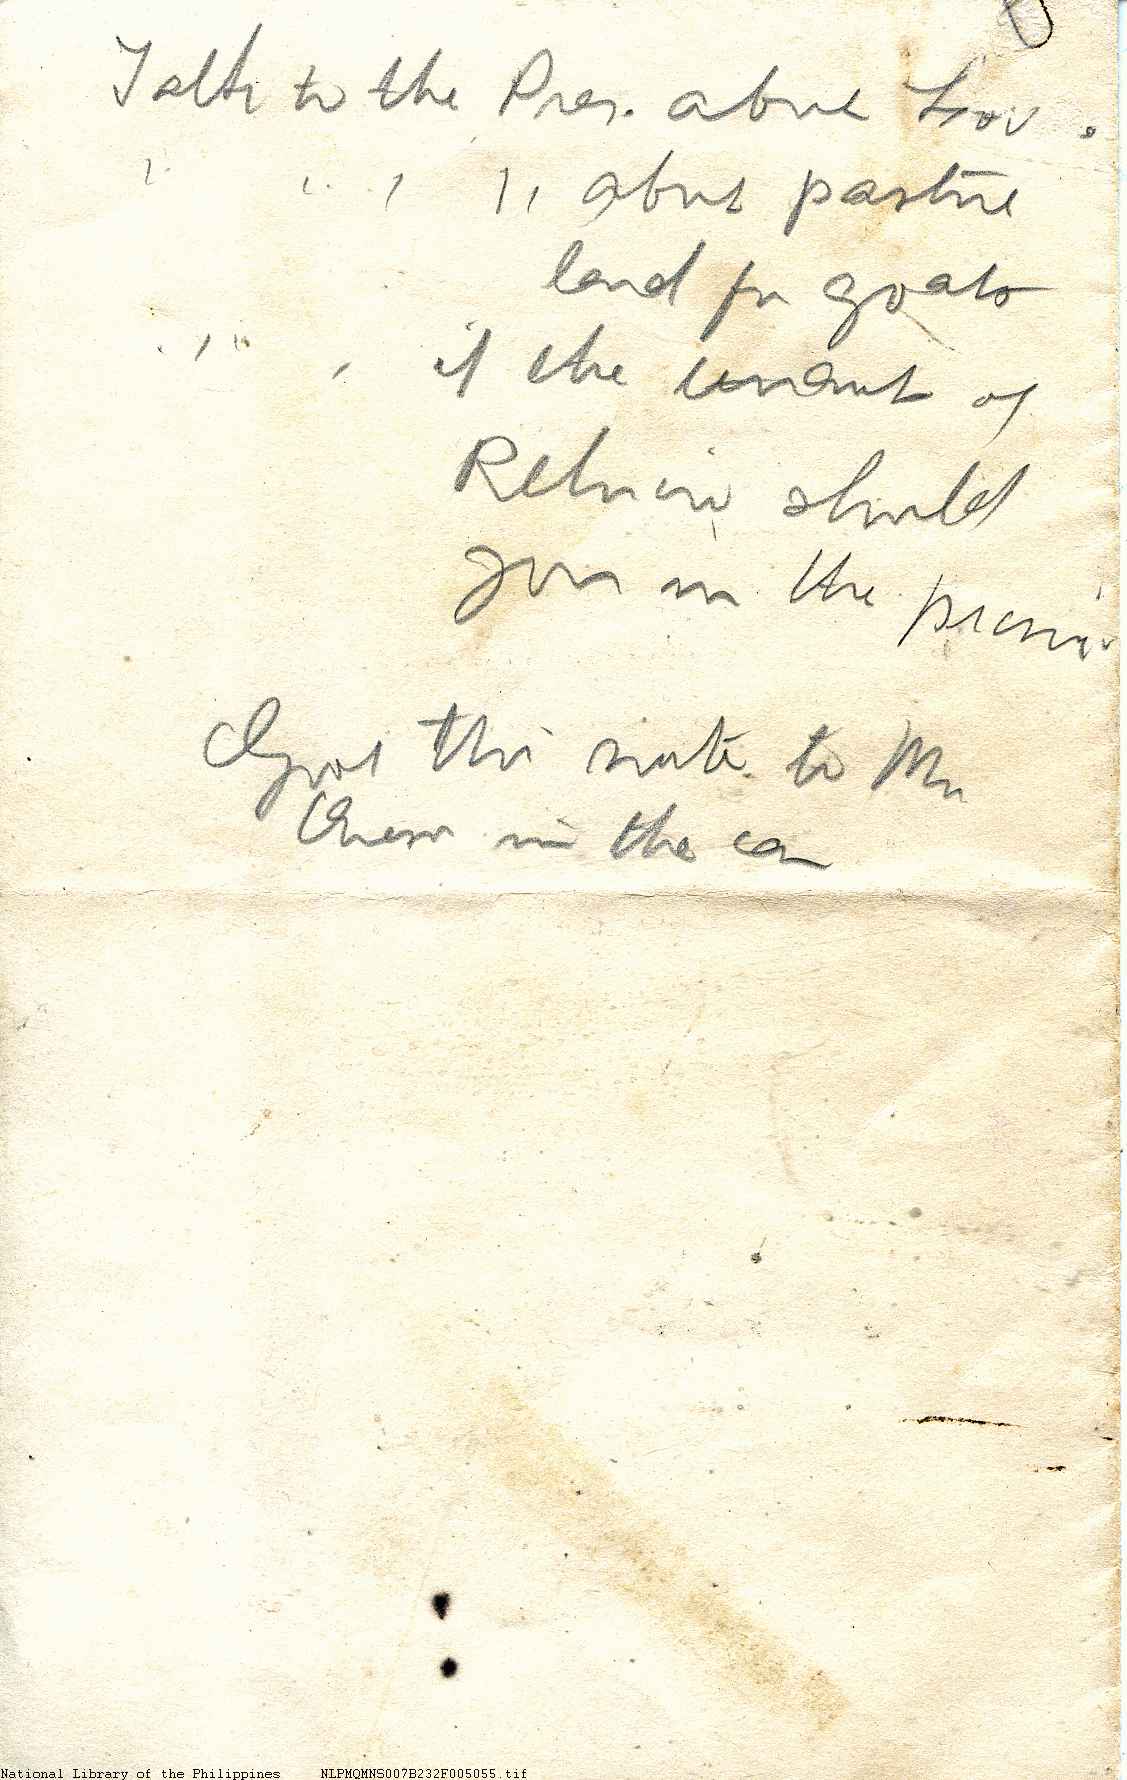 Talk to the Pres. about Gov.
" " " " about pasture
land for goats
" " " if the tenant of
should
join in the
this note to Mr
in the car
National Library of the Philippines NLPMQMNS007B232F005055.tif